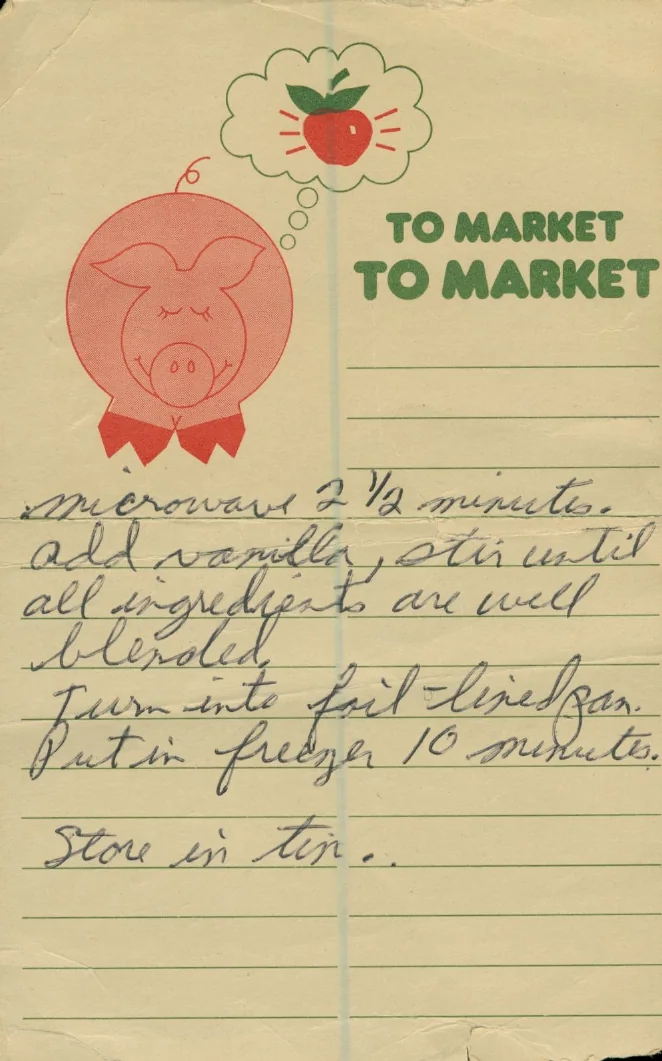 TO MARKET
TO MARKET
microwave 2 1/2 minutes.
add vanilla, stir until
all ingredients are well
blended.
Turn into foil-lined pan.
Put in freezer 10 minutes.
Store in tin..